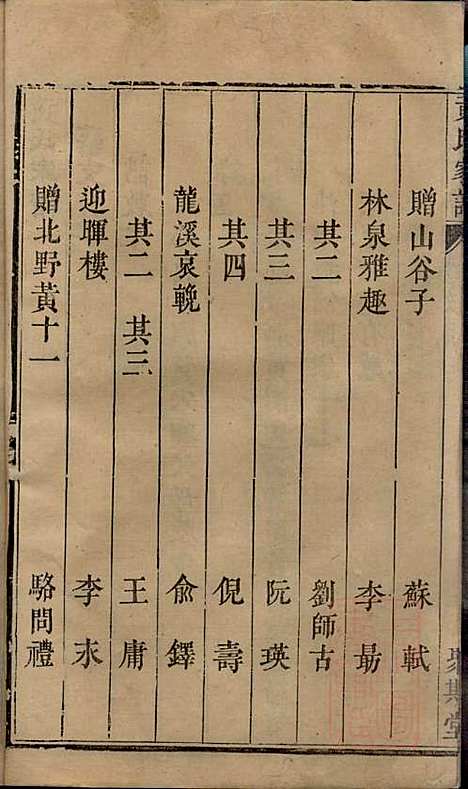 黃氏家譜
贈山谷子 蘇軾
林泉雅趣 李勗
其二 劉師古
其三 阮瑛
其四 倪壽
龍溪哀輓 俞鐸
其二 其三 王庸
迎暉樓 李末
贈北野黃十一 駱問禮